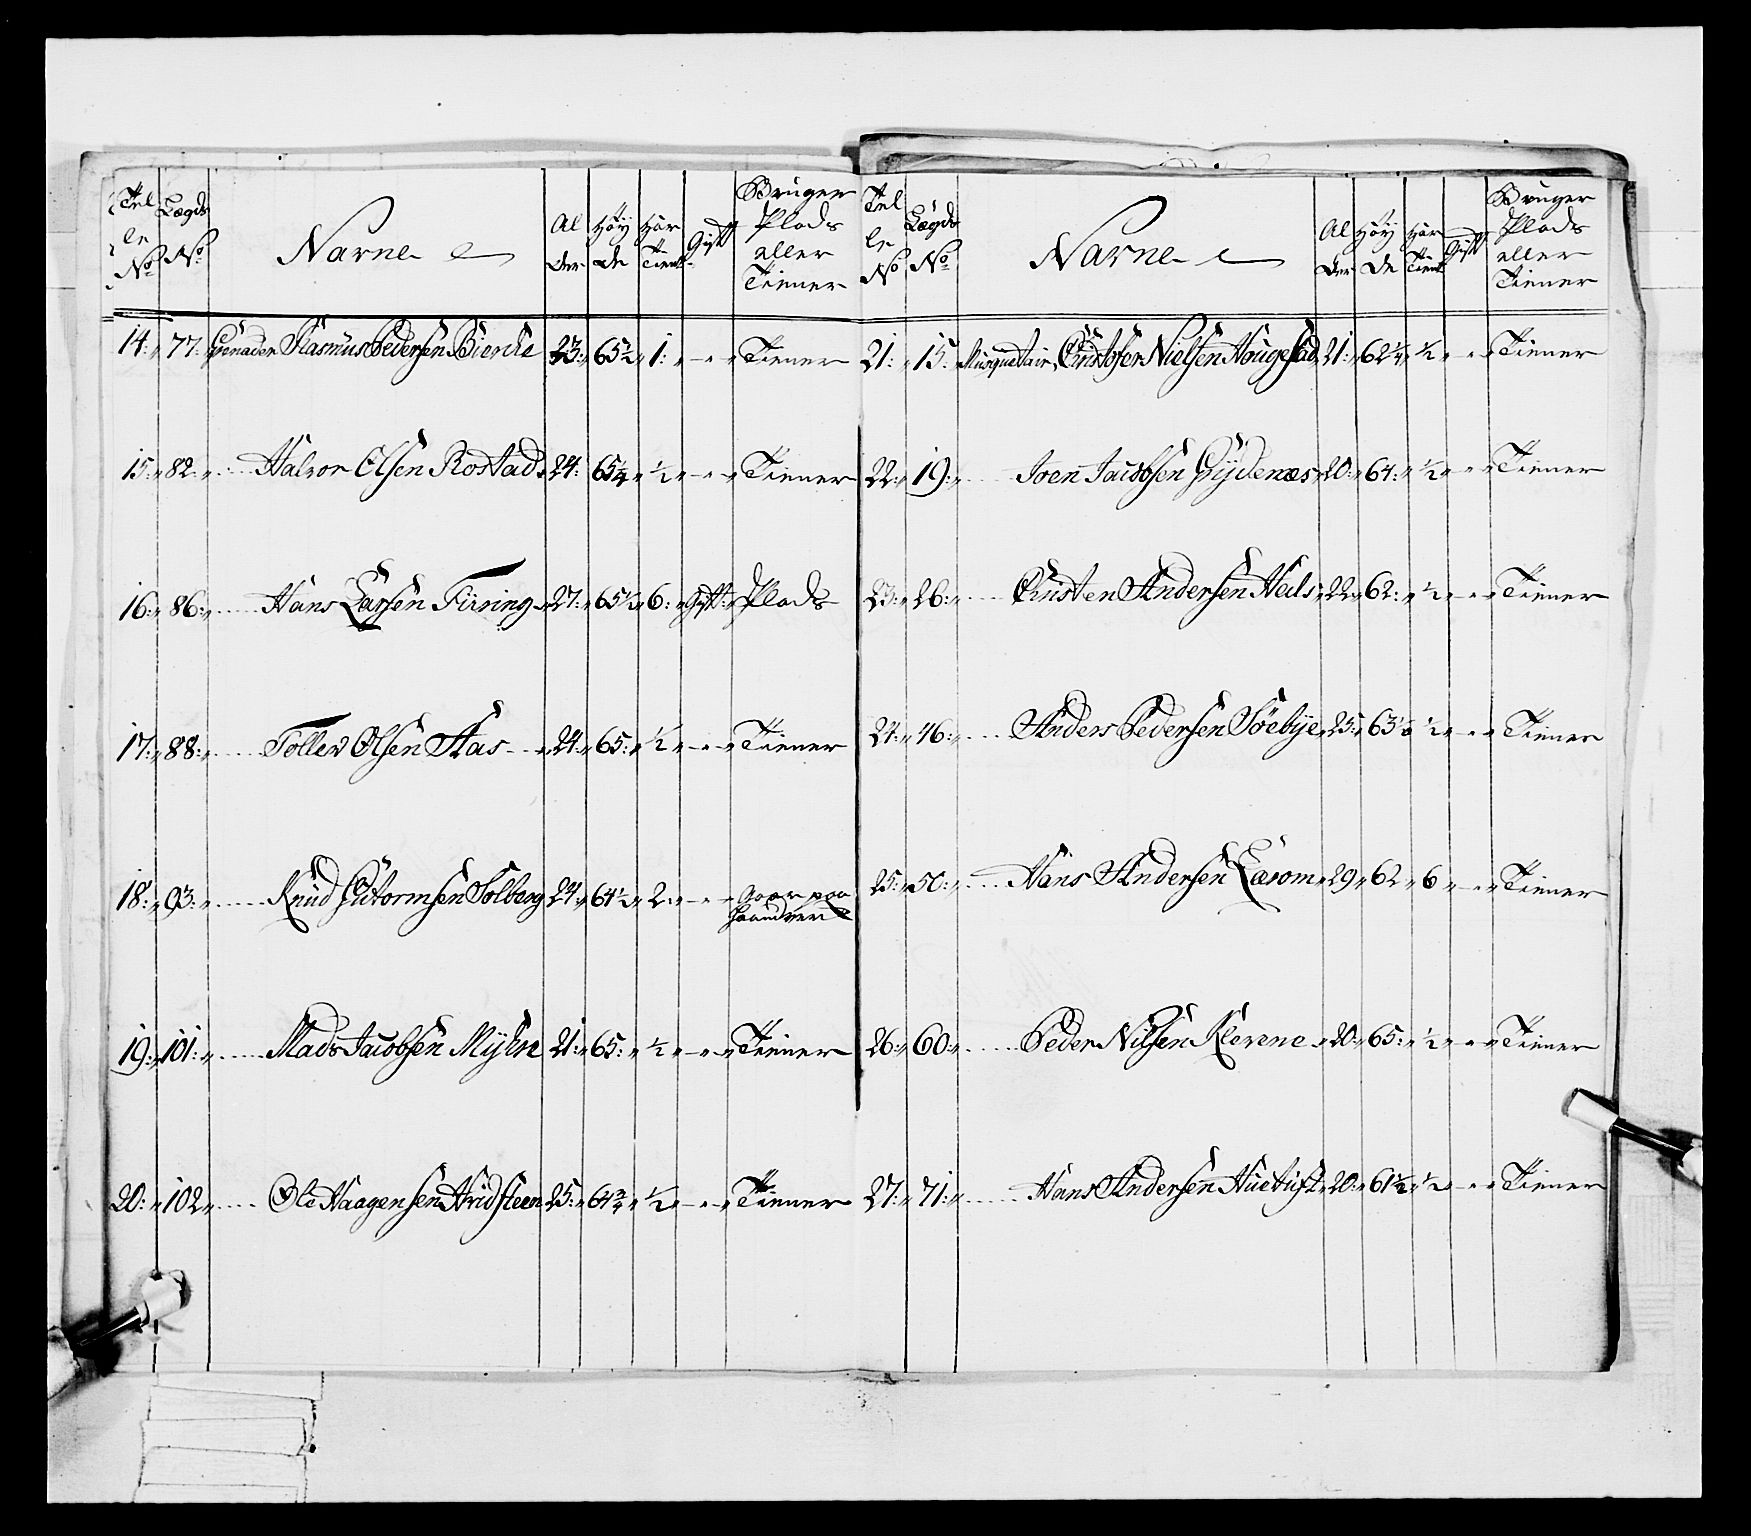 Tel le No | Lægds No | Navne | Al der | Høy de | Har Tient | Gift | Bruger Plads eller Tiener
14: 77: Grenader Rasmus Pedersen Bierche 23: 65½ 1: - Tiener
15: 82: Halvor Olsen Rostad 24: 65¼ ½ - Tiener
16: 86: Hans Larsen Firing 27: 65½ 6: Gift: Plads
17: 88: Tollev Olsen Aas 24: 65: ½ - Tiener
18: 93: Knud Guttormsen Solberg 24: 64½ 2: - Gaar paa
Haandverk
19: 101: Mads Jacobsen Myhre 21: 65: ½ - Tiener
20: 102 Ole Haagensen Hvidsteen 25: 64¾ ½ - Tiener
Tel le No | Lægds No | Navne | Al der | Høy de | Har Tient | Gift | Bruger Plads eller Tiener
21: 15: Musquetair Christofer Nielsen Hougestad 21: 62¼ ½ - Tiener
22: 19: Joen Jacobsen Gydenæs 20: 64: ½ - Tiener
23: 26: Christen Andersen Heils 22 62: ½ - Tiener
24: 46: Anders Pedersen Søebye 25: 63½ ½ - Tiener
25: 50: Hans Andersen Lærom 29 62 6 - Tiener
26: 60: Peder Nilsen Klevene 20: 65: ½ - Tiener
27: 71: Hans Andersen Huetuft 20: 61½ ½ - Tiener